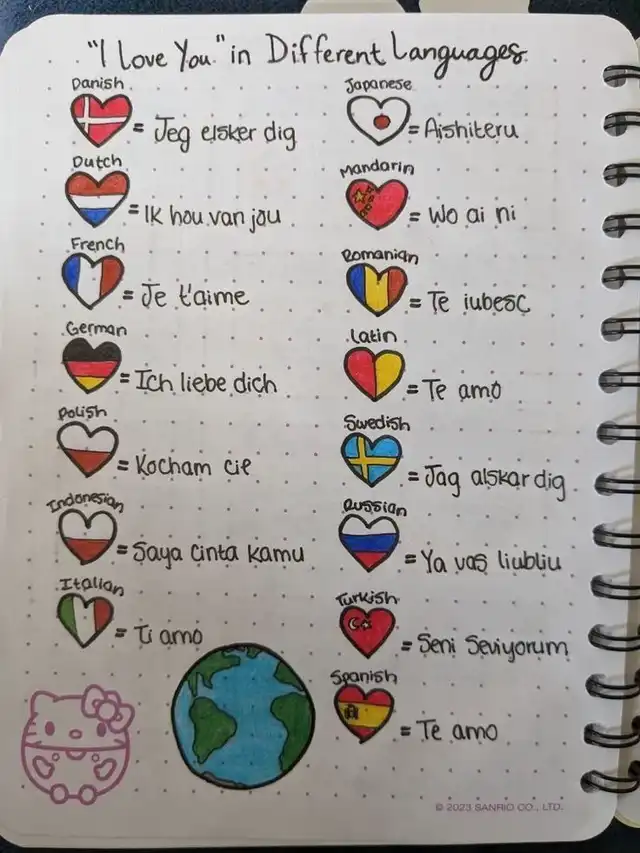 "I Love You" in Different Languages
Danish
= Jeg elsker dig
Dutch
= Ik hou van jou
French
= Je t'aime
German
= Ich liebe dich
Polish
= Kocham cię
Indonesian
= Saya cinta kamu
Italian
= Ti amo
Japanese
= Aishiteru
Mandarin
= Wo ai ni
Romanian
= Te iubesc
Latin
= Te amo
Swedish
= Jag alskar dig
Russian
= Ya vas liubliu
Turkish
= Seni Seviyorum
Spanish
= Te amo
© 2023 SANRIO CO., LTD.